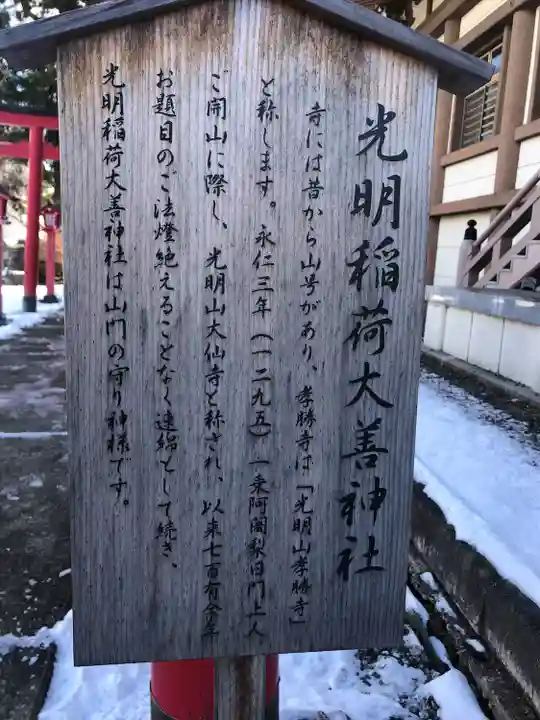 光明稲荷大善神社
寺には昔から山号があり、孝勝寺は「光明山孝勝寺」
と称します。永仁三年（一二九五）一乗阿闍梨日門上人
ご開山に際し、光明山大仙寺と称され、以来七百有余年
お題目のご法燈絶えることなく連綿として続き、
光明稲荷大善神社は山門の守り神様です。